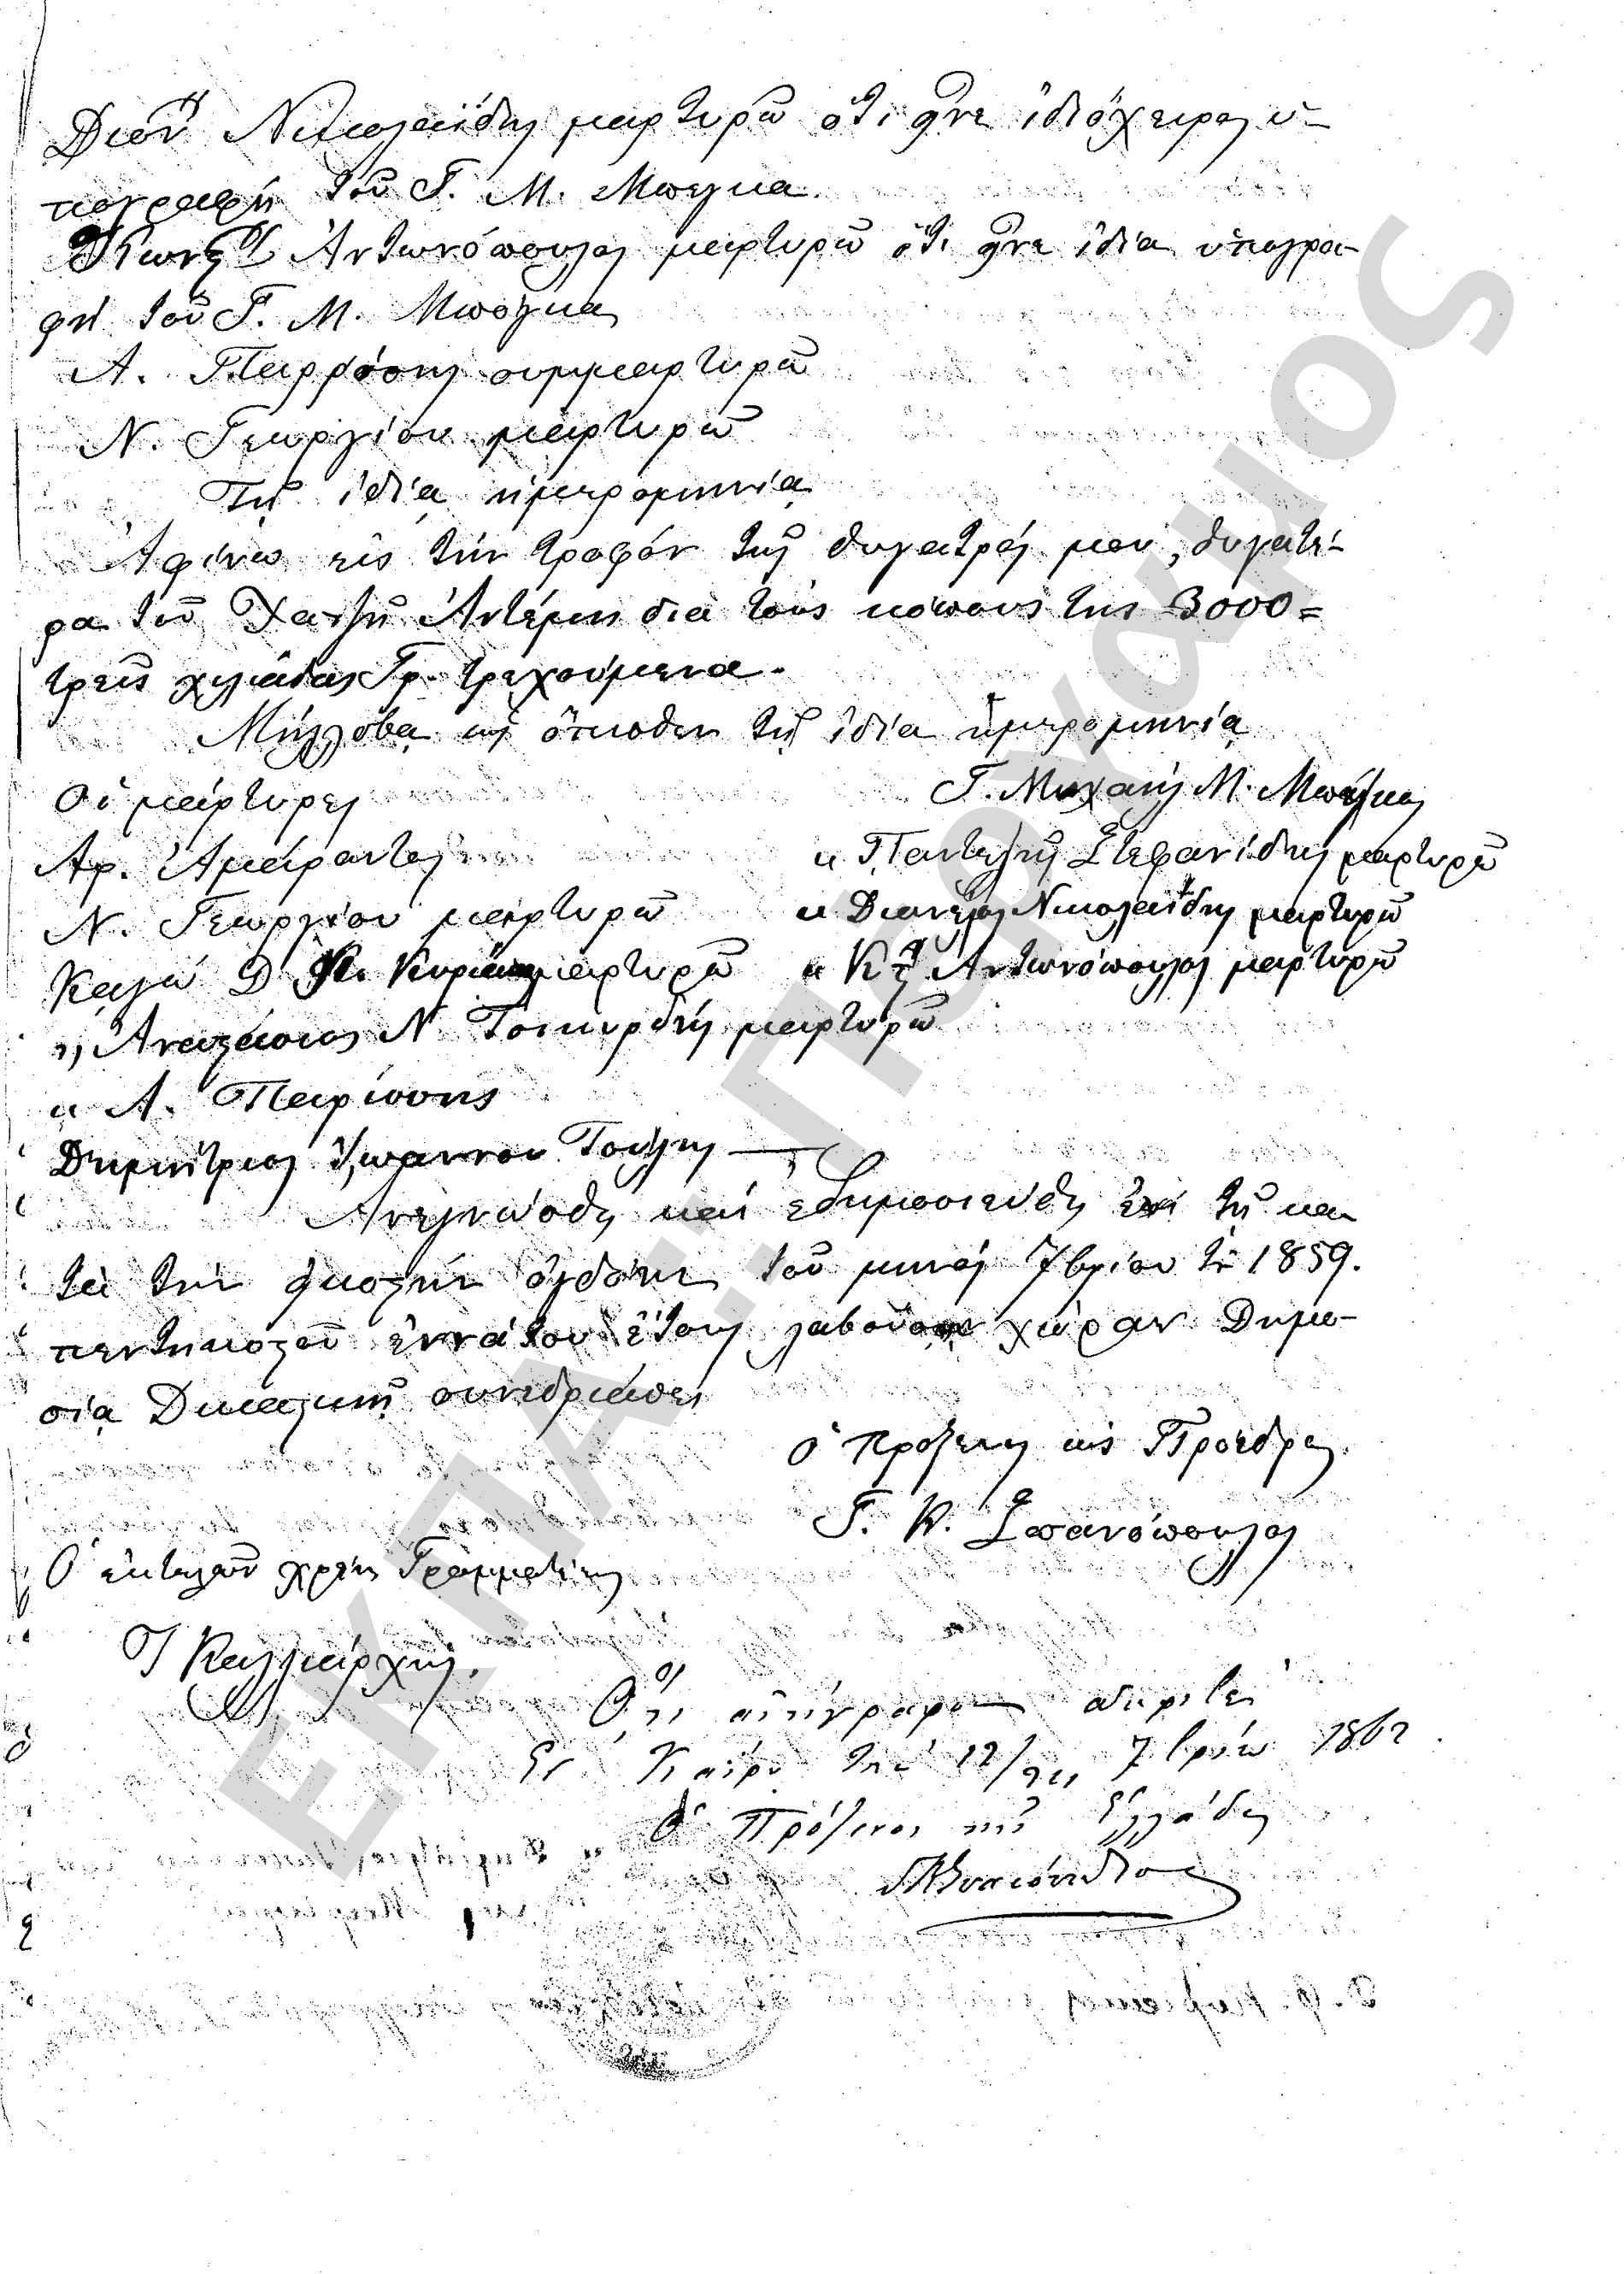 Διον. Νικολαΐδης μαρτυρῶ ὅτι ᾖνε ἰδιόχειρος ὑ-
πογραφὴ τοῦ Γ. Μ. Μπόγκα.
Κωνστ. Ἀντωνόπουλος μαρτυρῶ ὅτι ᾖνε ἰδία ὑπογρα-
φὴ τοῦ Γ. Μ. Μπόγκα
Α. Παρράσης συμμαρτυρῶ
Ν. Γεωργίου μαρτυρῶ
Τῇ ἰδίᾳ ἡμερομηνίᾳ
Ἀφίνω εἰς τὴν τροφὸν τῆς θυγατρός μου, θυγατέ-
ρα τοῦ Χατζῆ Ἀντέμη διὰ τοὺς κόπους της 3000=
τρεῖς χιλιάδας Γρ. τρεχούμενα.
ὡς ὄπισθεν τῇ ἰδίᾳ ἡμερομηνίᾳ
Οἱ μάρτυρες
Γ. Μιχαὴλ Μ. Μπόγκας
Αρ. Ἀμάραντος
" Παντελῆς Στεφανίδης μαρτυρῶ
Ν. Γεωργίου μαρτυρῶ
" Διονύσιος Νικολαΐδης μαρτυρῶ
Κἀγὼ Δ. Κυριάκης μαρτυρῶ
" Κ. Ἀντωνόπουλος μαρτυρῶ
" Ἀναστάσιος Ν. Τσικυρδῆς μαρτυρῶ
" Α. Παρίσσης
Δημήτριος Ἰωάννου
Ἀνεγνώσθη καὶ ἐδημοσιεύθη ἐπὶ τῇ κα-
τὰ τὴν εἰκοστὴν ὀγδόην τοῦ μηνὸς 7βρίου τοῦ 1859.
πεντηκοστοῦ ἐννάτου ἔτους λαβούσῃ χώραν Δημο-
σίᾳ Δικαστικῇ συνεδριάσει
ὁ Πρόξενος ὡς Πρόεδρος
Γ. Κ. Σπανόπουλος
Ὁ ἐκτελῶν χρέη Γραμματέως
Καλλιάρχης.
Ὅτι ἀντίγραφον ἀκριβὲς
Ἐν Καΐρῳ τῇ 12/24 7βρίου 1862.
Ὁ Πρόξενος τῆς Ἑλλάδος
ΕΚΠΑ-ΕΠΘΥΔΗΟΣ